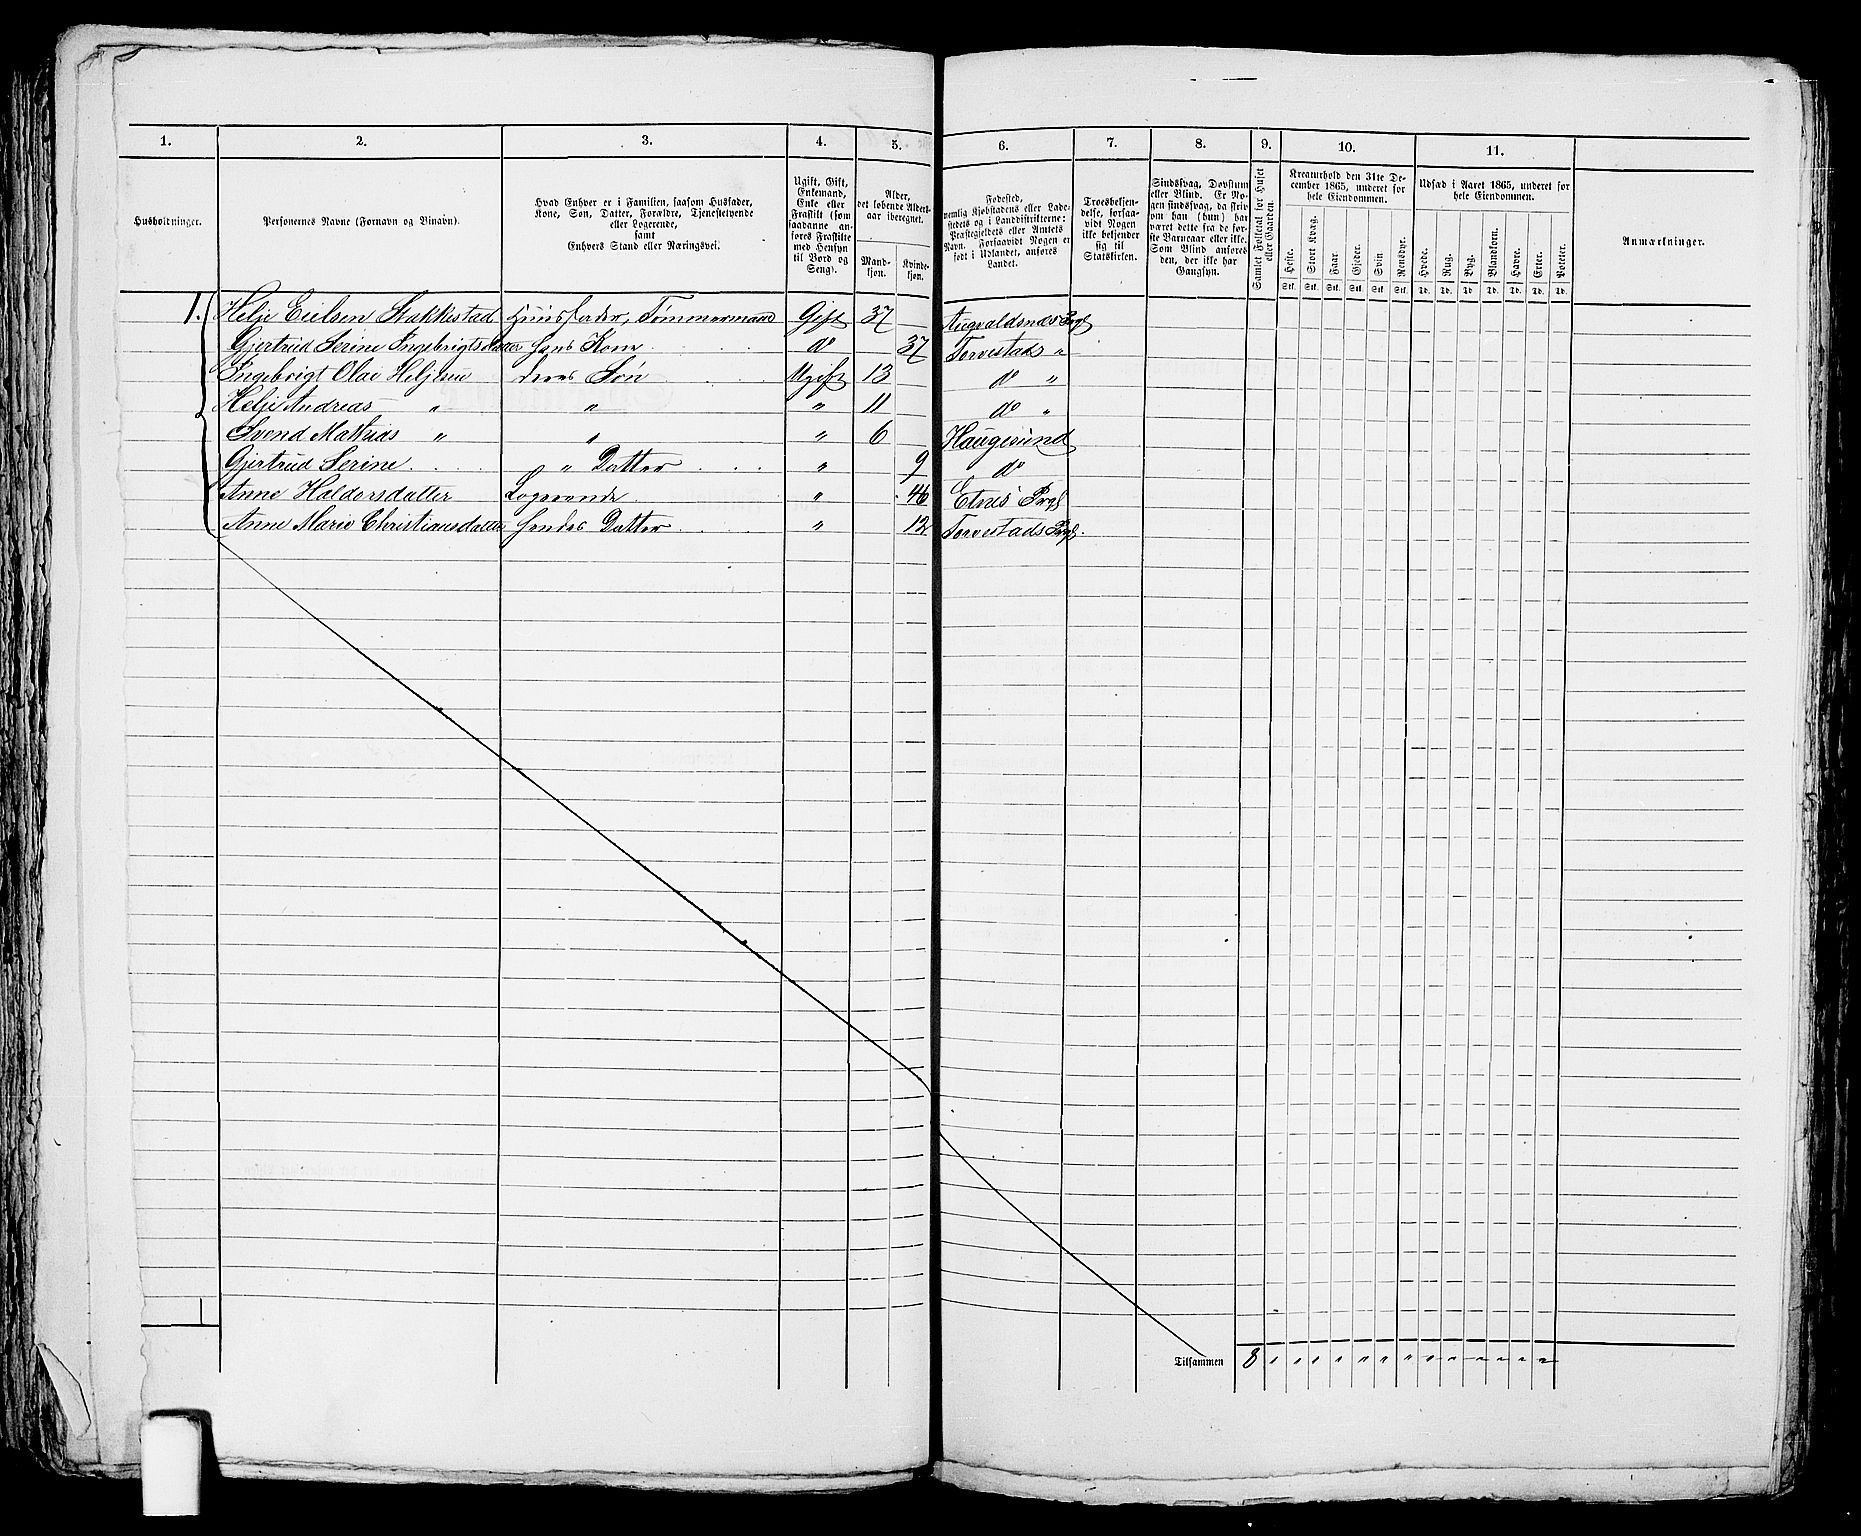 1. 2. 3. 4. 5. 6. 7. 8. 9. 10. 11.
Husholdninger.
Personernes Navne (Fornavn og Binavn).
Hvad Enhver er i Familien, saasom Husfader,
Kone, Søn, Datter, Forældre, Tjenestetyende
eller Logerende,
samt
Enhvers Stand eller Næringsvei.
Ugift, Gift,
Enkemand,
Enke eller
Fraskilt (som
saadanne an-
føres Fraskilte
med Hensyn
til Bord og
Seng).
Alder,
det løbende Alders-
aar iberegnet.
Mand-
kjøn.
Kvinde-
kjøn.
Fødested,
nemlig Kjøbstadens eller Lade-
stedets og i Landdistrikterne:
Præstegjeldets eller Amtets
Navn. Forsaavidt Nogen er
født i Udlandet, anføres
Landet.
Troesbekjen-
delse, forsaa-
vidt Nogen
ikke bekjender
sig til
Statskirken.
Sindssvag, Døvstum
eller Blind. Er No-
gen sindssvag, da skriv
om han (hun) har
været dette fra de før-
ste Barneaar eller ikke.
Som Blind anføres
den, der ikke har
Gangsyn.
Samlet Folketal for Huset
eller Gaarden.
Kreaturhold den 31te De-
cember 1865, underet for
hele Eiendommen.
Heste. Stort Kvæg. Faar. Gjeder. Svin Rensdyr.
Stk. Stk. Stk. Stk. Stk. Stk.
Udsæd i Aaret 1865, underet for
hele Eiendommen.
Hvede. Rug. Byg. Blandkorn. Havre. Erter. Poteter.
Td. Td. Td. Td. Td. Td. Td.
Anmærkninger.
1. Helje Eielsen Stakkestad Huusfader, Tømmermand Gift 37 Augvaldsnæs Prgl
Gjertrud Serine Ingebrigtsdatter hans Kone do 37 Torvestads "
Ingebrigt Olai Heljsen deres Søn Ugift 13 do "
Helje Andreas " " " 11 do "
Svend Mathias " " " 6 Haugesund
Gjertrud Serine " Datter " 9 do
Anne Haldorsdatter Logerende " 46 Etnes Prgl
Anne Marie Christiansdatter hendes Datter " 12 Torvestads Prgl.
1
Tilsammen 8 " " " " " " " " " " " " "